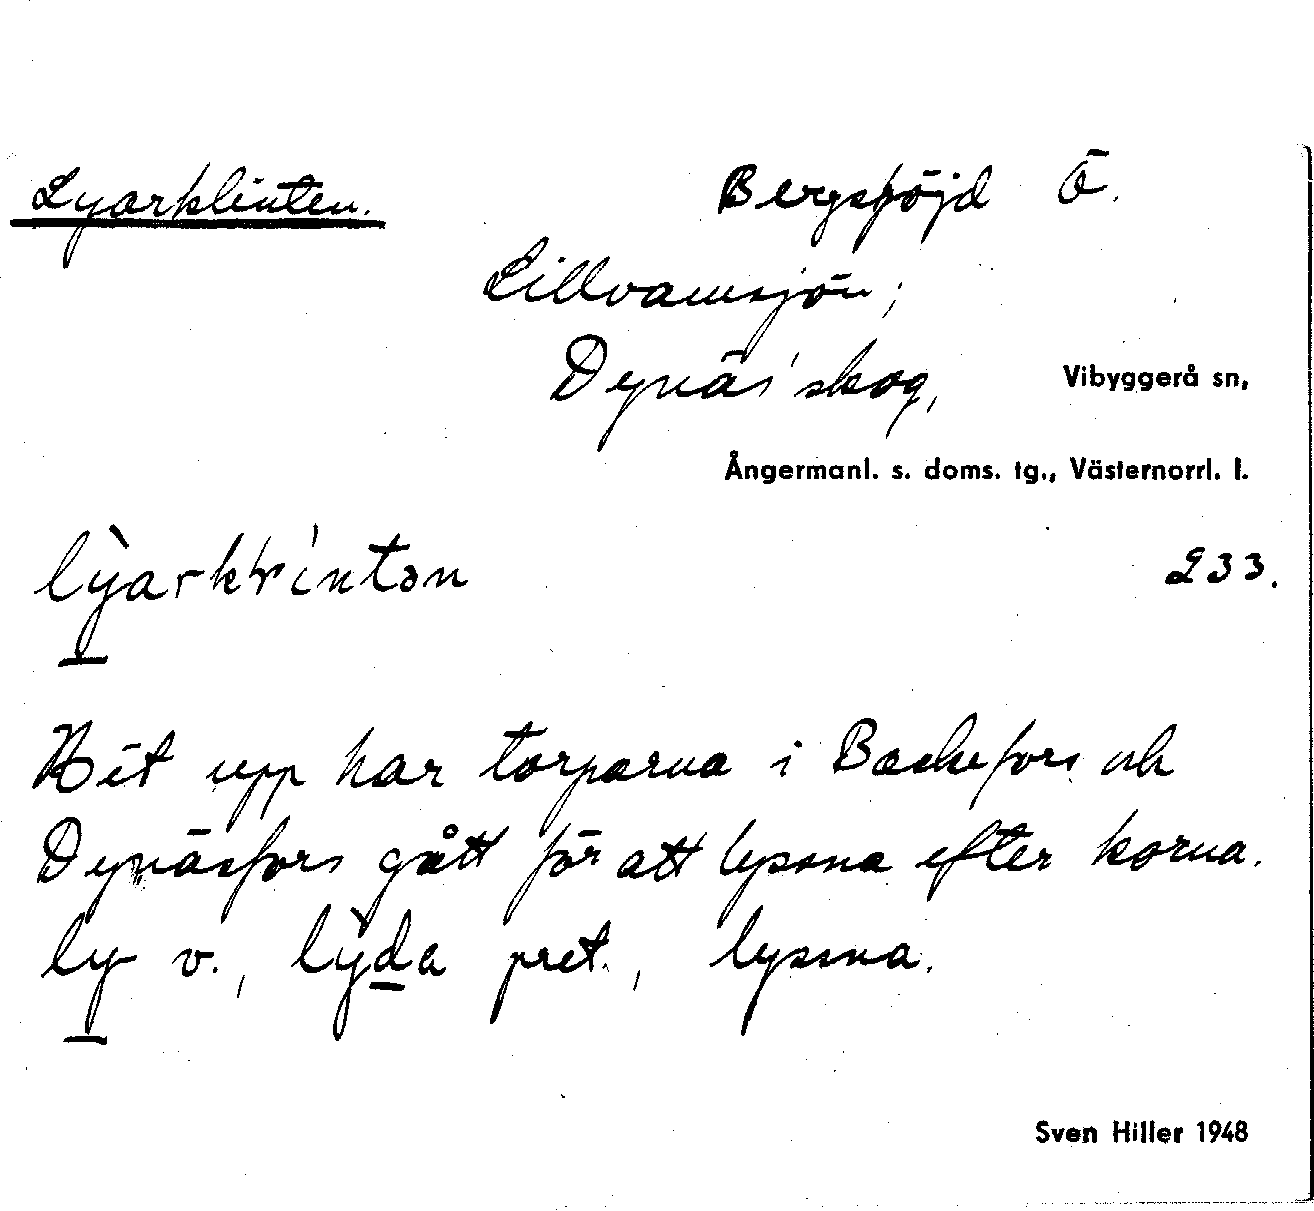 Lyarklinten.
Bergshöjd Ö.
Lillvamsjön;
Dynäs' skog,
Vibyggerå sn,
Ångermanl. s. doms. tg., Västernorrl. l.
lỳarkl'intən
233.
Hit upp har torparna i Backefors och
Dynäsfors gått för att lyssna efter korna.
ly v., lỳda pret., lyssna.
Sven Hiller 1948